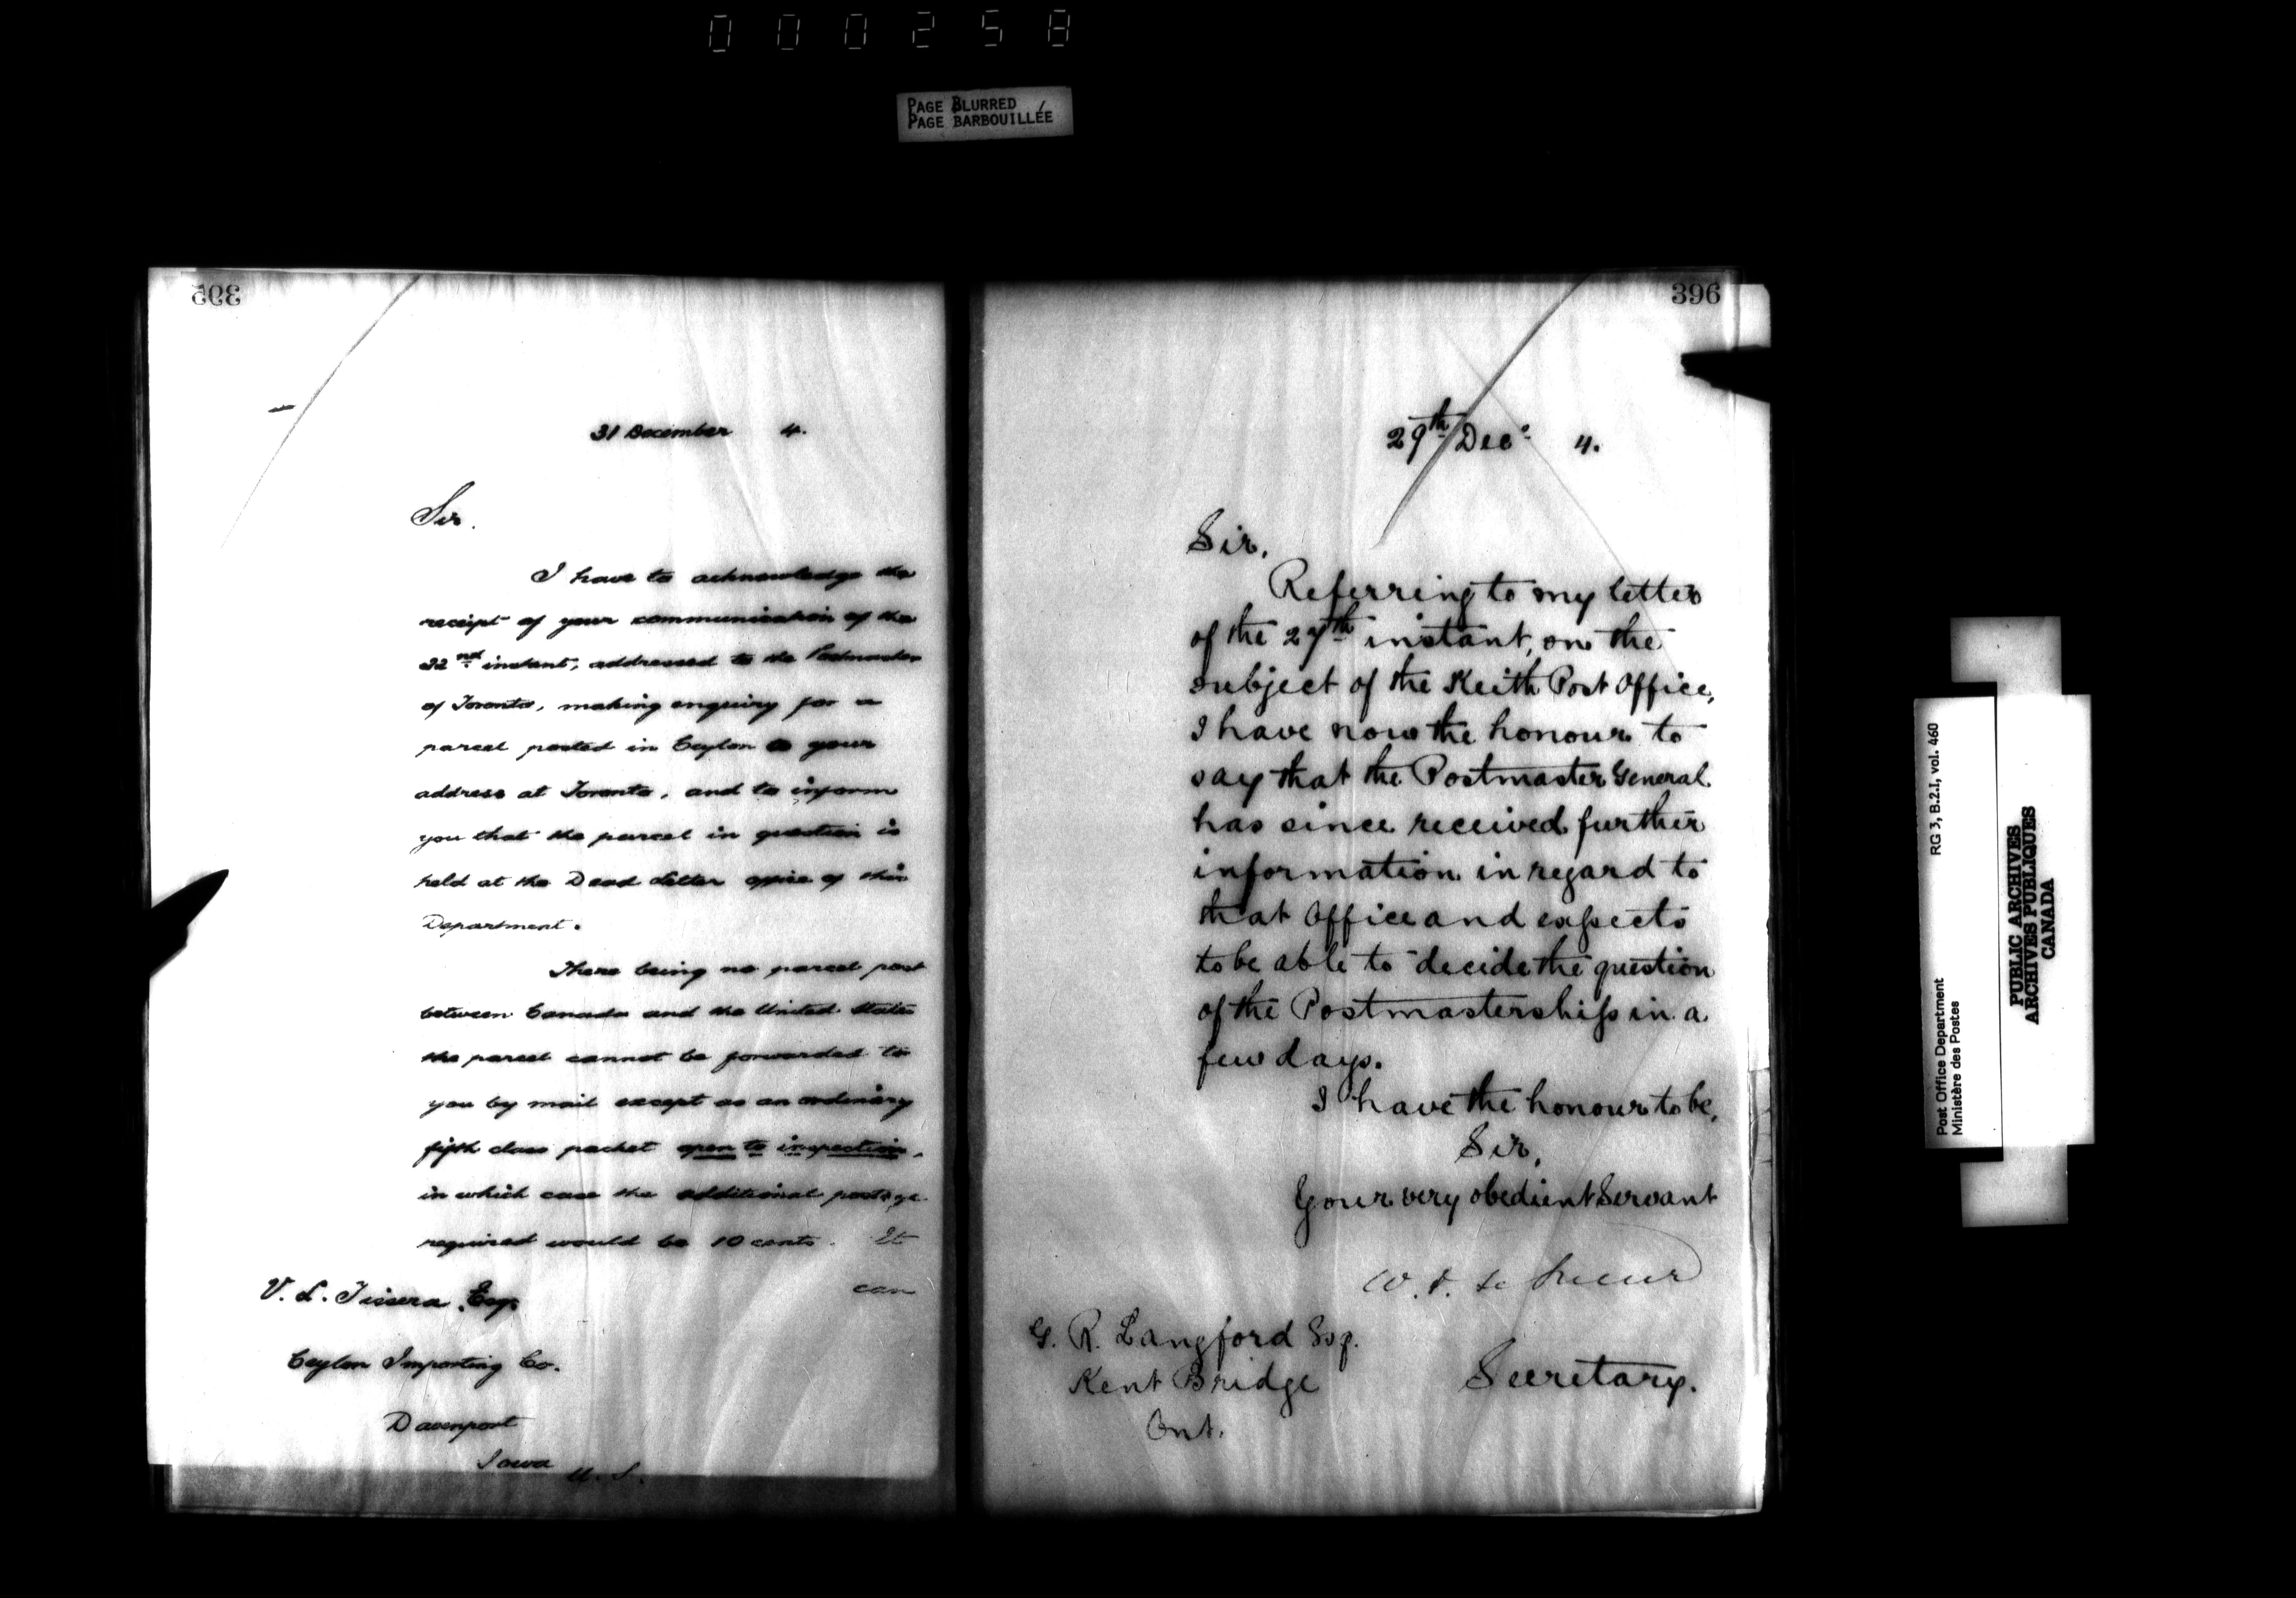 000258
PAGE BLURRED
PAGE BARBOUILLÉE
395
31 December 4.
Sir.
I have to acknowledge the
receipt of your communication of the
22nd instant, addressed to the Postmaster
of Toronto, making enquiry for a
parcel posted in Ceylon to your
address at Toronto, and to inform
you that the parcel in question is
held at the Dead Letter office of this
Department.
There being no parcel post
between Canada and the United States
the parcel cannot be forwarded to
you by mail except as an ordinary
fifth class packet open to inspection,
in which case the additional postage
required would be 10 cents. It
can
V. L. Tissera, Esq.
Ceylon Importing Co.
Davenport
Iowa U.S.
396
29th Dec. 4.
Sir,
Referring to my letter
of the 27th instant, on the
subject of the Keith Post Office,
I have now the honour to
say that the Postmaster General
has since received further
information in regard to
that Office and expects
to be able to decide the question
of the Postmastership in a
few days.
I have the honour to be,
Sir,
Your very obedient Servant
W. D. Le Sueur
Secretary.
G. R. Langford Esq.
Kent Bridge
Ont.
Post Office Department
Ministère des Postes
RG 3, B.2.I, vol. 460
PUBLIC ARCHIVES
ARCHIVES PUBLIQUES
CANADA